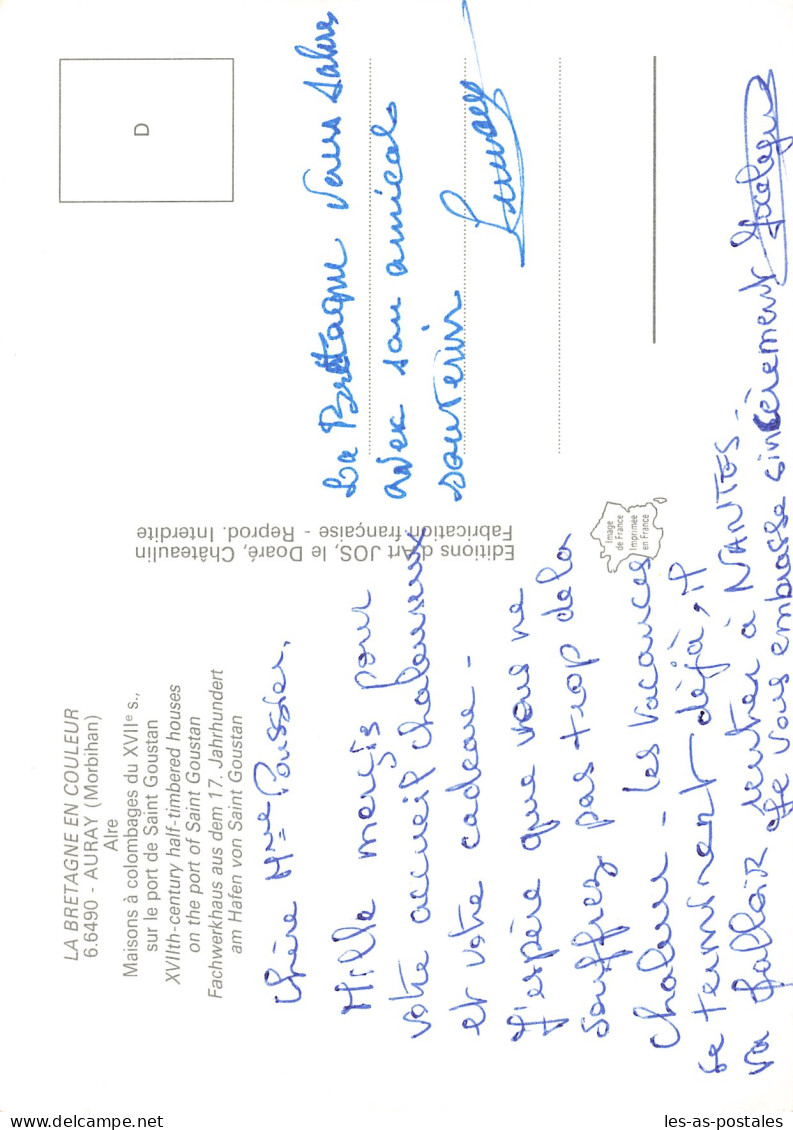 LA BRETAGNE EN COULEUR
6.6490 - AURAY (Morbihan)
Alre
Maisons à colombages du XVIIe s.,
sur le port de Saint Goustan
XVIIth-century half-timbered houses
on the port of Saint Goustan
Fachwerkhaus aus dem 17. Jahrhundert
am Hafen von Saint Goustan
Chère Mme
Mille mercis pour
votre accueil chaleureux
et votre cadeau -
J'espère que vous ne
souffrez pas trop de la
chaleur - les vacances
se terminent déjà, il
va falloir rentrer à NANTES -
Je vous embrasse sincèrement
Editions d'Art JOS, le Doaré, Châteaulin
Fabrication française - Reprod. Interdite
Image
de France
Imprimée
en France
D
La Bretagne vous salue
avec son amical
souvenir
les-as-postales